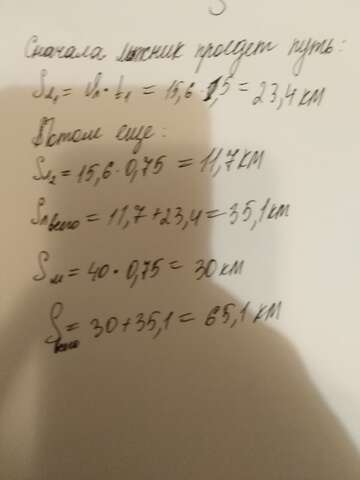 Сначала лыжник пройдет путь:
Sл₁ = Vл · t₁ = 15,6 · 1,5 = 23,4 км
Потом еще:
Sл₂ = 15,6 · 0,75 = 11,7 км
Sл всего = 11,7 + 23,4 = 35,1 км
Sм = 40 · 0,75 = 30 км
Sвсего = 30 + 35,1 = 65,1 км